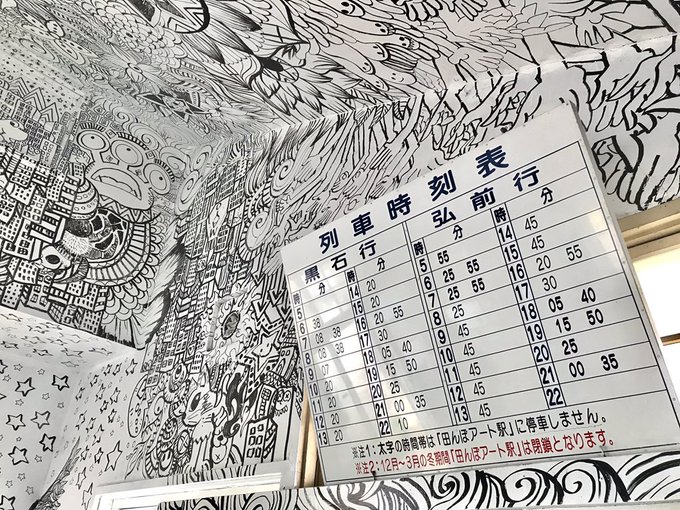 列車時刻表
黒石行 弘前行
時 分 時 分 時 分 時 分
5 14 20 5 55 14 45
6 38 15 20 6 25 55 15 45
7 08 38 16 20 55 7 25 55 16 20 55
8 08 38 17 30 8 17 30
9 07 18 05 40 9 45 18 05 40
10 20 19 15 50 10 45 19 15 50
11 20 20 11 45 20 25
12 20 21 12 45 21 00 35
13 20 22 10 13 45 22
※注1:太字の時間帯は「田んぼアート駅」に停車しません。
※注2:12月〜3月の冬期間「田んぼアート駅」は閉鎖となります。